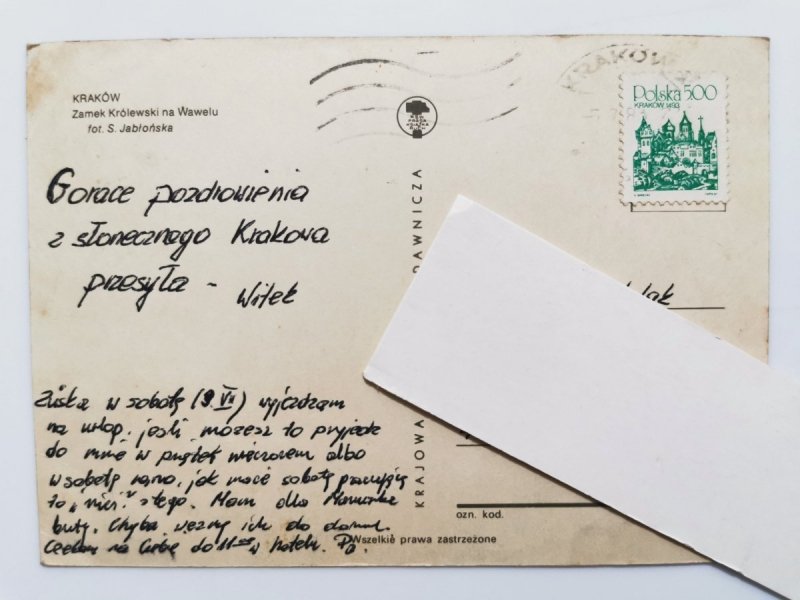 KRAKÓW
Zamek Królewski na Wawelu
fot. S. Jabłońska
KRAKÓW
Polska 5.00
KRAKÓW 1493
Gorące pozdrowienia
z słonecznego Krakowa
przesyła - Witek
lak
Zuśka w sobotę (9.VII) wyjeżdżam
na urlop. jeśli możesz to przyjedź
do mnie w piątek wieczorem albo
w sobotę rano, jak macie sobotę pracującą
to „nici” z tego. Mam dla
buty. Chyba wezmę ich do domu.
Czekam na Ciebie do 11⁰⁰ w hotelu. Pa.
KRAJOWA
DAWNICZA
ozn. kod.
Wszelkie prawa zastrzeżone